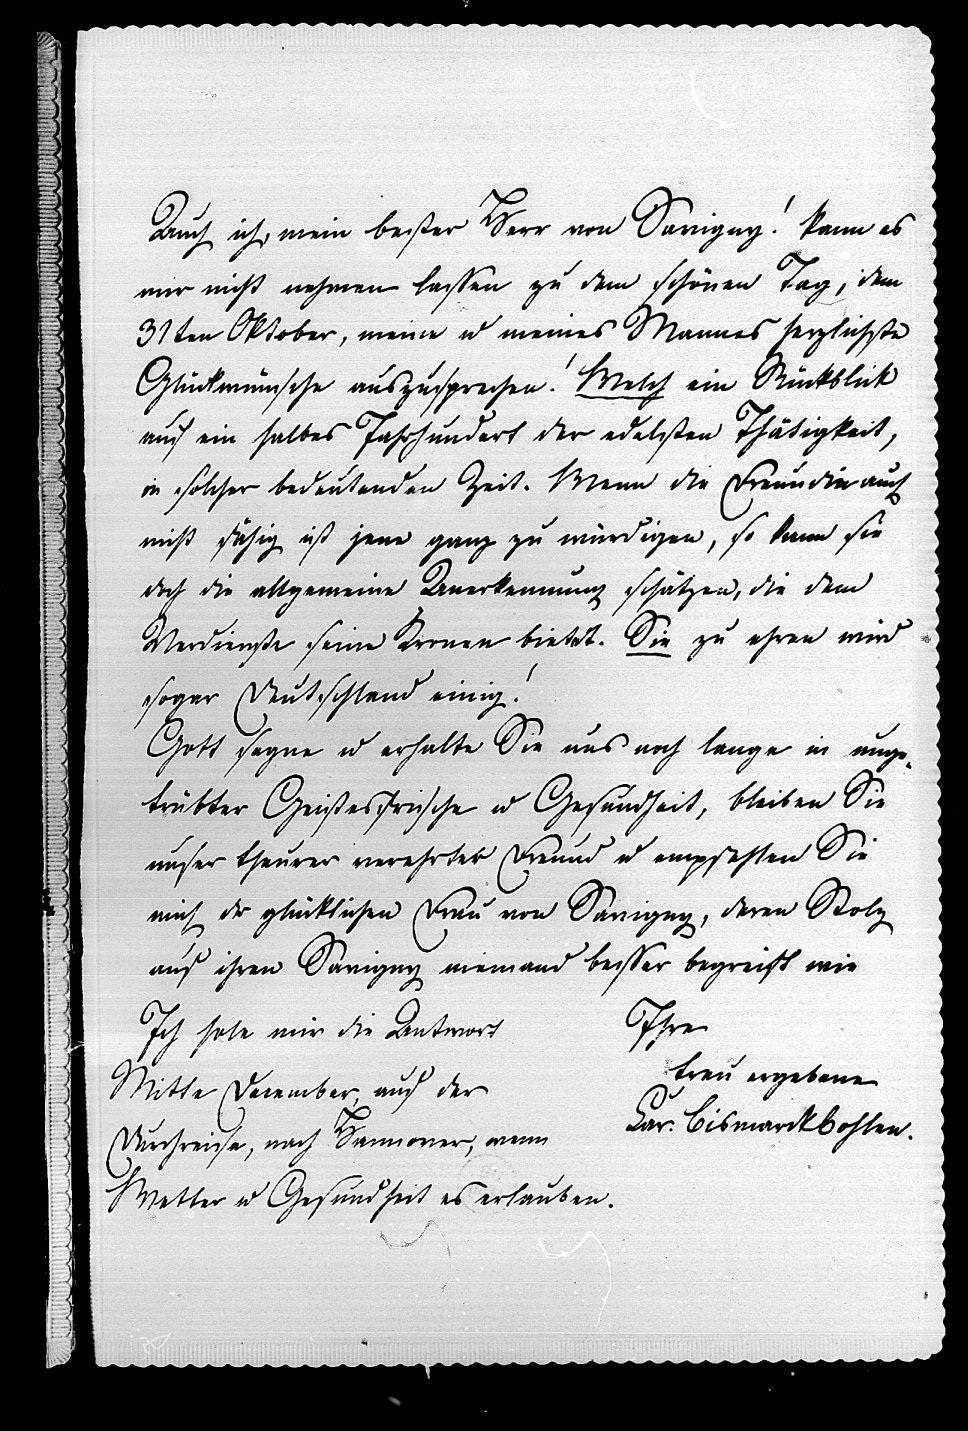 Auch ich, mein bester Herr von Savigny! kann es
mir nicht nehmen lassen zu dem schönen Tag, dem
31ten Oktober, meine u meines Mannes herzlichste
Glückwünsche auszusprechen! Welch ein Rückblick
auf ein halbes Jahrhundert der edelsten Thätigkeit,
in solcher bedeutenden Zeit. Wenn die Freundin auch
nicht fähig ist jene ganz zu würdigen, so kann sie
doch die allgemeine Anerkennung schätzen, die dem
Verdienste seine Kronen bietet. Sie zu ehren wird
sogar Deutschland einig!
Gott segne u erhalte Sie uns noch lange in unge-
trübter Geistesfrische u Gesundheit, bleiben Sie
unser theurer verehrter Freund u empfehlen Sie
mich der glücklichen Frau von Savigny, deren Stolz
auf ihren Savigny niemand besser begreift wie
Ihre
treu ergebene
Car. Bismarckbohlen.
Ich hole mir die Antwort
Mitte December, auf der
Durchreise, nach Hannover, wenn
Wetter u Gesundheit es erlauben.